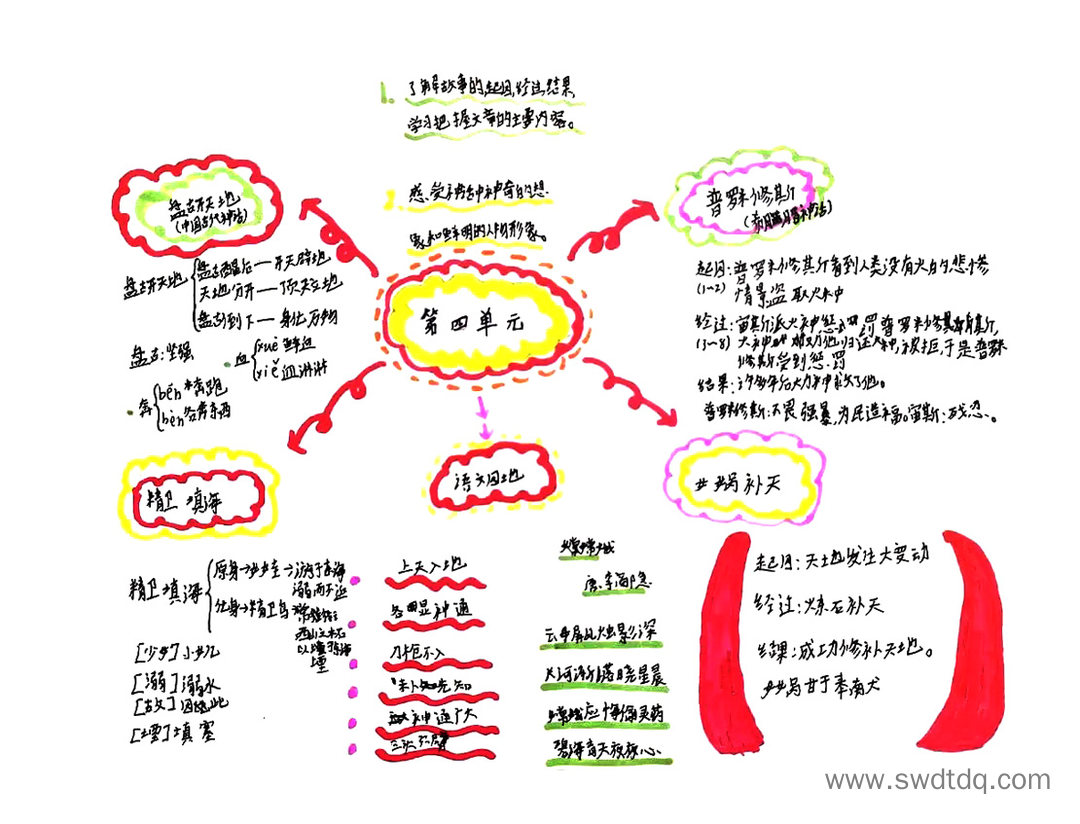 1. 了解故事的起因,经过,结果,
学习把握文章的主要内容。
2. 感受神话中神奇的想
象和鲜明的人物形象。
第四单元
盘古开天地
(中国古代神话)
盘古开天地
盘古醒后—开天辟地
天地分开—顶天立地
盘古倒下—身化万物
盘古:坚强
血
xuè 鲜血
xiě 血淋淋
奔
bēn 奔跑
bèn 各奔东西
普罗米修斯
(希腊神话)
起因:普罗米修斯看到人类没有火的悲惨
(1~2) 情景盗取火种
经过:宙斯派火神惩罚普罗米修斯,
(3~8) 火神劝他归还火种,被拒,于是普罗米
修斯受到惩罚
结果:许多年后大力神救了他。
普罗米修斯:不畏强暴,为民造福。宙斯:残忍。
精卫填海
精卫填海
原身→女娃→游于东海
溺而不返
化身→精卫鸟→常衔
西山之木石
以堙于东海
堙
[少女]小女儿
[溺]溺水
[故]因此
[堙]填塞
语文园地
上天入地
各显神通
刀枪不入
未卜先知
神通广大
三头六臂
嫦娥
唐·李商隐
云母屏风烛影深
长河渐落晓星晨
嫦娥应悔偷灵药
碧海青天夜夜心
女娲补天
起因:天地发生大变动
经过:炼石补天
结果:成功修补天地。
女娲甘于奉献
www.swdtdq.com